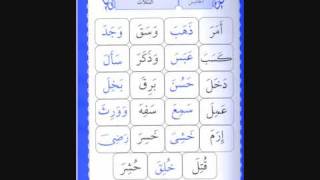 أَمَرَ ذَهَبَ وَسَقَ وَجَدَ
كَسَبَ عَبَسَ وَذَكَرَ سَأَلَ
دَخَلَ حَسُنَ بَرِقَ بَخِلَ
عَمِلَ سَمِعَ سَفِهَ وَوَرِثَ
إِرَمَ خَشِيَ خَسِرَ رَضِيَ
قُتِلَ خُلِقَ حُشِرَ